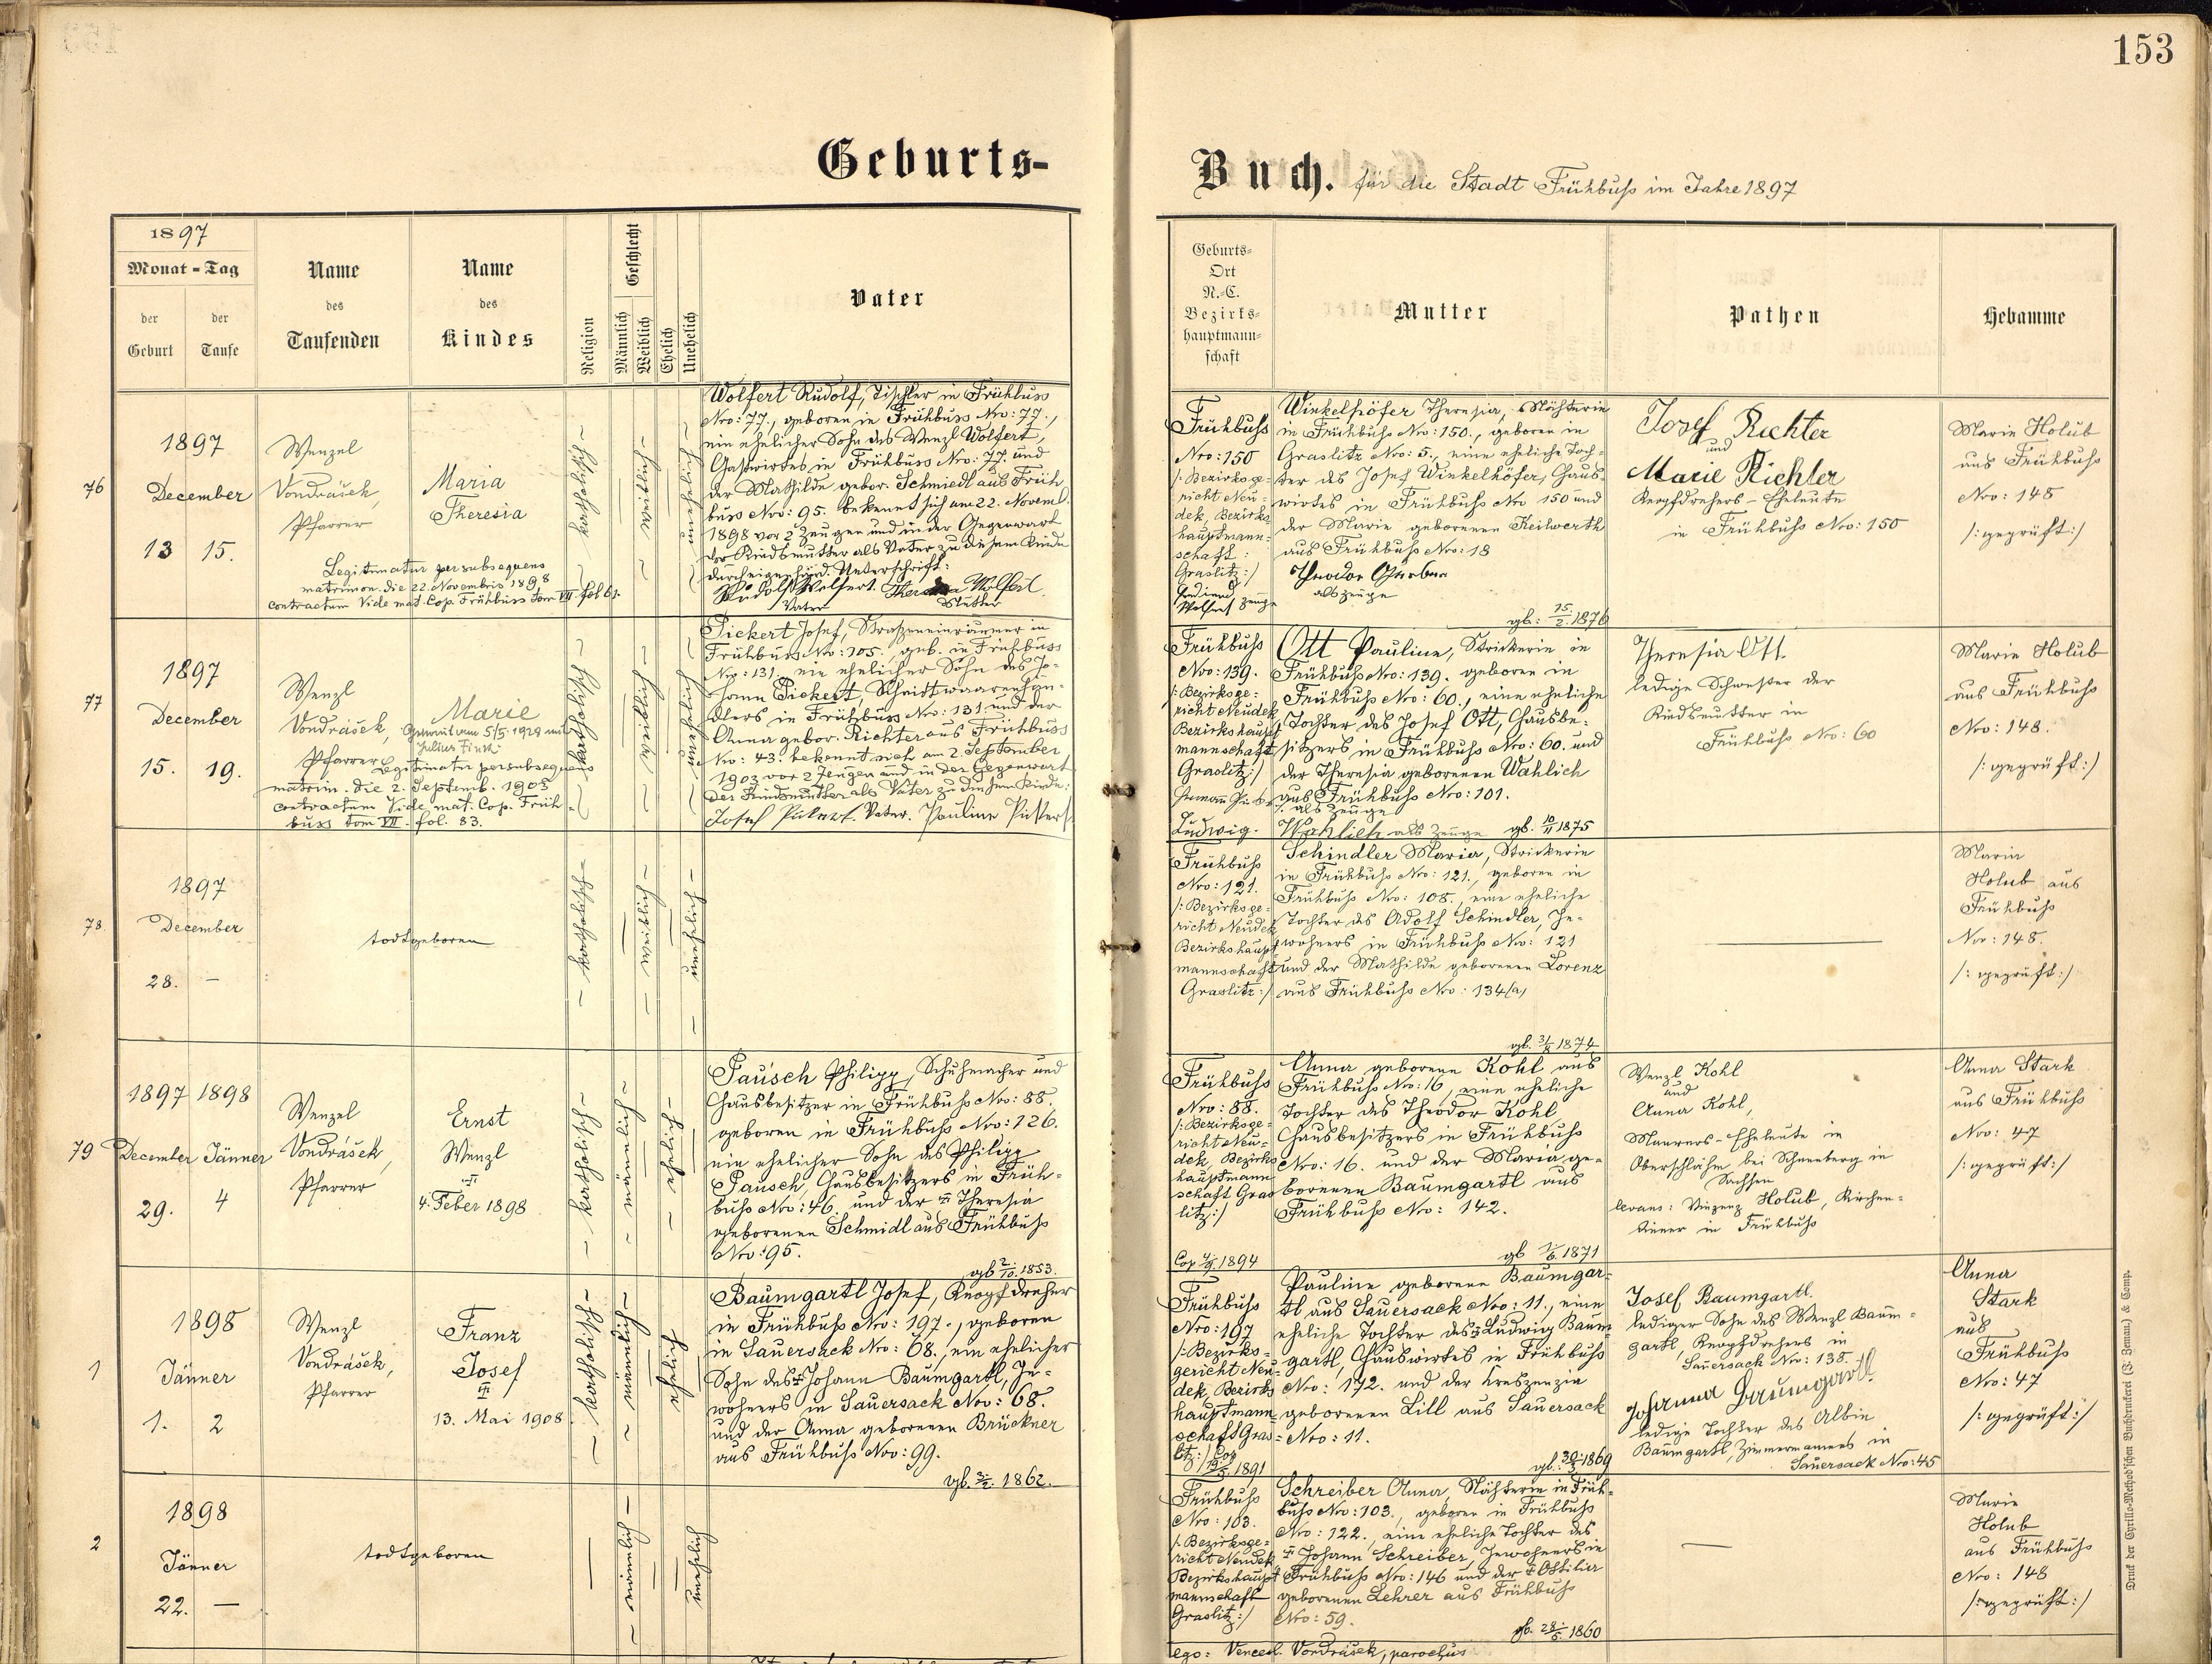 153
Geburts-
Buch. für die Stadt Frühbuß im Jahre 1897
1897
Monat - Tag
der Geburt
der Taufe
Name des Taufenden
Name des Kindes
Religion
Geschlecht
Männlich
Weiblich
Ehelich
Unehelich
Vater
Geburts-
Ort
N.-C.
Bezirks-
hauptmann-
schaft
Mutter
Pathen
Hebamme
76
1897
December
13 15.
Wenzel
Vondrášek,
Pfarrer
Maria
Theresia
Legitimatur per subsequens
matrimon. die 22. Novembris 1898
contractum Vide mat. Cop. Frühbuss tom VII. fol 61.
– katholisch –
– weiblich –
– unehelich –
Wolfert Rudolf, Tischler in Frühbuss
Nro: 77., geboren in Frühbuss Nro: 77.,
ein ehelicher Sohn des Wenzl Wolfert,
Gastwirtes in Frühbuss Nro: 77. und
der Mathilde gebor. Schmiedl aus Früh
buss Nro: 95. bekennt sich am 22. Novemb.
1898 vor 2 Zeugen und in der Gegenwart
der Kindsmutter als Vater zu diesem Kinde
durch eigenhänd. Unterschrift:
Rudolf Wolfert. Theresia Wolfert
Vater Mutter
Frühbuß
Nro: 150
/: Bezirksge-
richt Neu-
dek, Bezirks
hauptmann-
schaft:
Graslitz:/
Ferdinand
Wolfert Zeuge
Winkelhöfer Theresia, Nähterin
in Frühbuß Nro: 150., geboren in
Graslitz Nro: 5., eine eheliche Toch-
ter des Josef Winkelhöfer, Haus-
wirtes in Frühbuß Nro 150 und
der Marie geborenen Keilwerth
aus Frühbuß Nro: 18
Theodor
als Zeuge
gb: 15/2. 1876
Josef Richter
und
Marie Richter
Knopfdrehers-Eheleute
in Frühbuß Nro: 150
Marie Holub
aus Frühbuß
Nro: 148
/: geprüft:/
77
1897
December
15. 19.
Wenzl
Vondrášek,
Pfarrer
Marie
Getraut am 5/5 1929 mit
Julius Fink
Legitimatur per subsequens
matrim. die 2. Septemb. 1903
contractum Vide mat. Cop. Früh
buss tom VII. fol. 83.
– katholisch –
– weiblich –
– unehelich –
Pickert Josef, Strasseneinräumer in
Frühbuss Nro: 105., geb. in Frühbuss
Nro: 131., ein ehelicher Sohn des Jo-
hann Pickert, Schnittwaarenhän-
dlers in Frühbuss Nro: 131 und der
Anna gebor. Richter aus Frühbuss
Nro: 43. bekennt sich am 2. September
1903 vor 2 Zeugen und in der Gegenwart
der Kindsmutter als Vater zu diesem Kinde:
Josef Pickert Vater. Pauline Pickert
Frühbuß
Nro: 139.
/: Bezirksge-
richt Neudek
Bezirkshaupt
mannschaft
Graslitz:/
Ludwig.
Ott Pauline, Strickerin in
Frühbuß Nro: 139. geboren in
Frühbuß Nro: 60., eine eheliche
Tochter des Josef Ott, Hausbe-
sitzers in Frühbuß Nro: 60. und
der Theresia geborenen Wahlich
aus Frühbuß Nro: 101.
als Zeuge
Wahlich als Zeuge gb. 10/11 1875
Theresia Ott.
ledige Schwester der
Kindsmutter in
Frühbuß Nro: 60
Marie Holub
aus Frühbuß
Nro: 148.
/: geprüft:/
78
1897
December
28. –
todtgeboren
– katholisch –
– weiblich –
– unehelich –
Frühbuß
Nro: 121.
/: Bezirksge-
richt Neudek
Bezirkshaupt
mannschaft
Graslitz:/
Schindler Maria, Strickerin
in Frühbuß Nro: 121., geboren in
Frühbuß Nro: 108., eine eheliche
Tochter des Adolf Schindler, In-
wohners in Frühbuß Nro: 121
und der Mathilde geborenen Lorenz
aus Frühbuß Nro: 134/a,
gb. 31/8 1874
Maria
Holub aus
Frühbuß
Nro: 148.
/: geprüft:/
79
1897 1898
December Jänner
29. 4
Wenzel
Vondrášek,
Pfarrer
Ernst
Wenzl
†
4. Feber 1898
– katholisch –
– männlich –
– ehelich –
Pausch Philipp, Schuhmacher und
Hausbesitzer in Frühbuß Nro: 88.
geboren in Frühbuß Nro: 126.
ein ehelicher Sohn des Philipp
Pausch, Hausbesitzers in Früh-
buß Nro: 46. und der † Theresia
geborenen Schmidl aus Frühbuß
Nro: 95.
gb 2/10. 1853.
Frühbuß
Nro: 88.
/: Bezirksge-
richt Neu-
dek, Bezirks
hauptmann
schaft Gras
litz:/
Anna geborene Kohl aus
Frühbuß Nro: 16, eine eheliche
Tochter des Theodor Kohl,
Hausbesitzers in Frühbuß
Nro: 16. und der Maria ge-
borenen Baumgartl aus
Frühbuß Nro: 142.
gb 1/6. 1871
Wenzl Kohl
und
Anna Kohl,
Maurers-Eheleute in
Oberschlähm bei Schneeberg in
Sachsen
levans: Vinzenz Holub, Kirchen-
diener in Frühbuß
Anna Stark
aus Frühbuß
Nro: 47
/: geprüft:/
1
1898
Jänner
1. 2
Wenzl
Vondrášek,
Pfarrer
Franz
Josef
†
13. Mai 1908
– katholisch –
– männlich –
ehelich
Baumgartl Josef, Knopfdreher
in Frühbuß Nro: 197., geboren
in Sauersack Nro: 68., ein ehelicher
Sohn des † Johann Baumgartl, In-
wohners in Sauersack Nro: 68.
und der Anna geborenen Brückner
aus Frühbuß Nro: 99.
gb. 3/2. 1862.
Frühbuß
Nro: 197
/: Bezirks-
gericht Neu-
dek, Bezirks
hauptmann-
schaft Gras-
litz:/
Pauline geborene Baumgar-
tl aus Sauersack Nro: 11., eine
eheliche Tochter des † Ludwig Baum-
gartl, Hauswirtes in Frühbuß
Nro: 172. und der Kreszenzia
geborenen Lill aus Sauersack
Nro: 11.
gb. 30/3. 1869
Josef Baumgartl.
lediger Sohn des Wenzl Baum-
gartl, Knopfdrehers in
Sauersack Nro: 138.
Johanna Baumgartl
ledige Tochter des Albin
Baumgartl, Zimmermannes in
Sauersack Nro: 45
Anna
Stark
aus
Frühbuß
Nro: 47
/: geprüft:/
2
1898
Jänner
22. –
todtgeboren
– männlich –
unehelich
Frühbuß
Nro: 103.
/: Bezirksge-
richt Neudek
Bezirkshaupt
mannschaft
Graslitz:/
Schreiber Anna, Nähterin in Früh-
buß Nro: 103., geboren in Frühbuß
Nro: 122., eine eheliche Tochter des
† Johann Schreiber, Inwohners in
Frühbuß Nro: 146 und der † Ottilia
geborenen Lehrer aus Frühbuß
Nro: 59.
gb. 28/5. 1860
Marie
Holub
aus Frühbuß
Nro: 148
/: geprüft:/
ego: Vencesl. Vondrášek, parochus
Druck der Cyrillo-Method'schen Buchdruckerei (J. Zeman) & Comp.